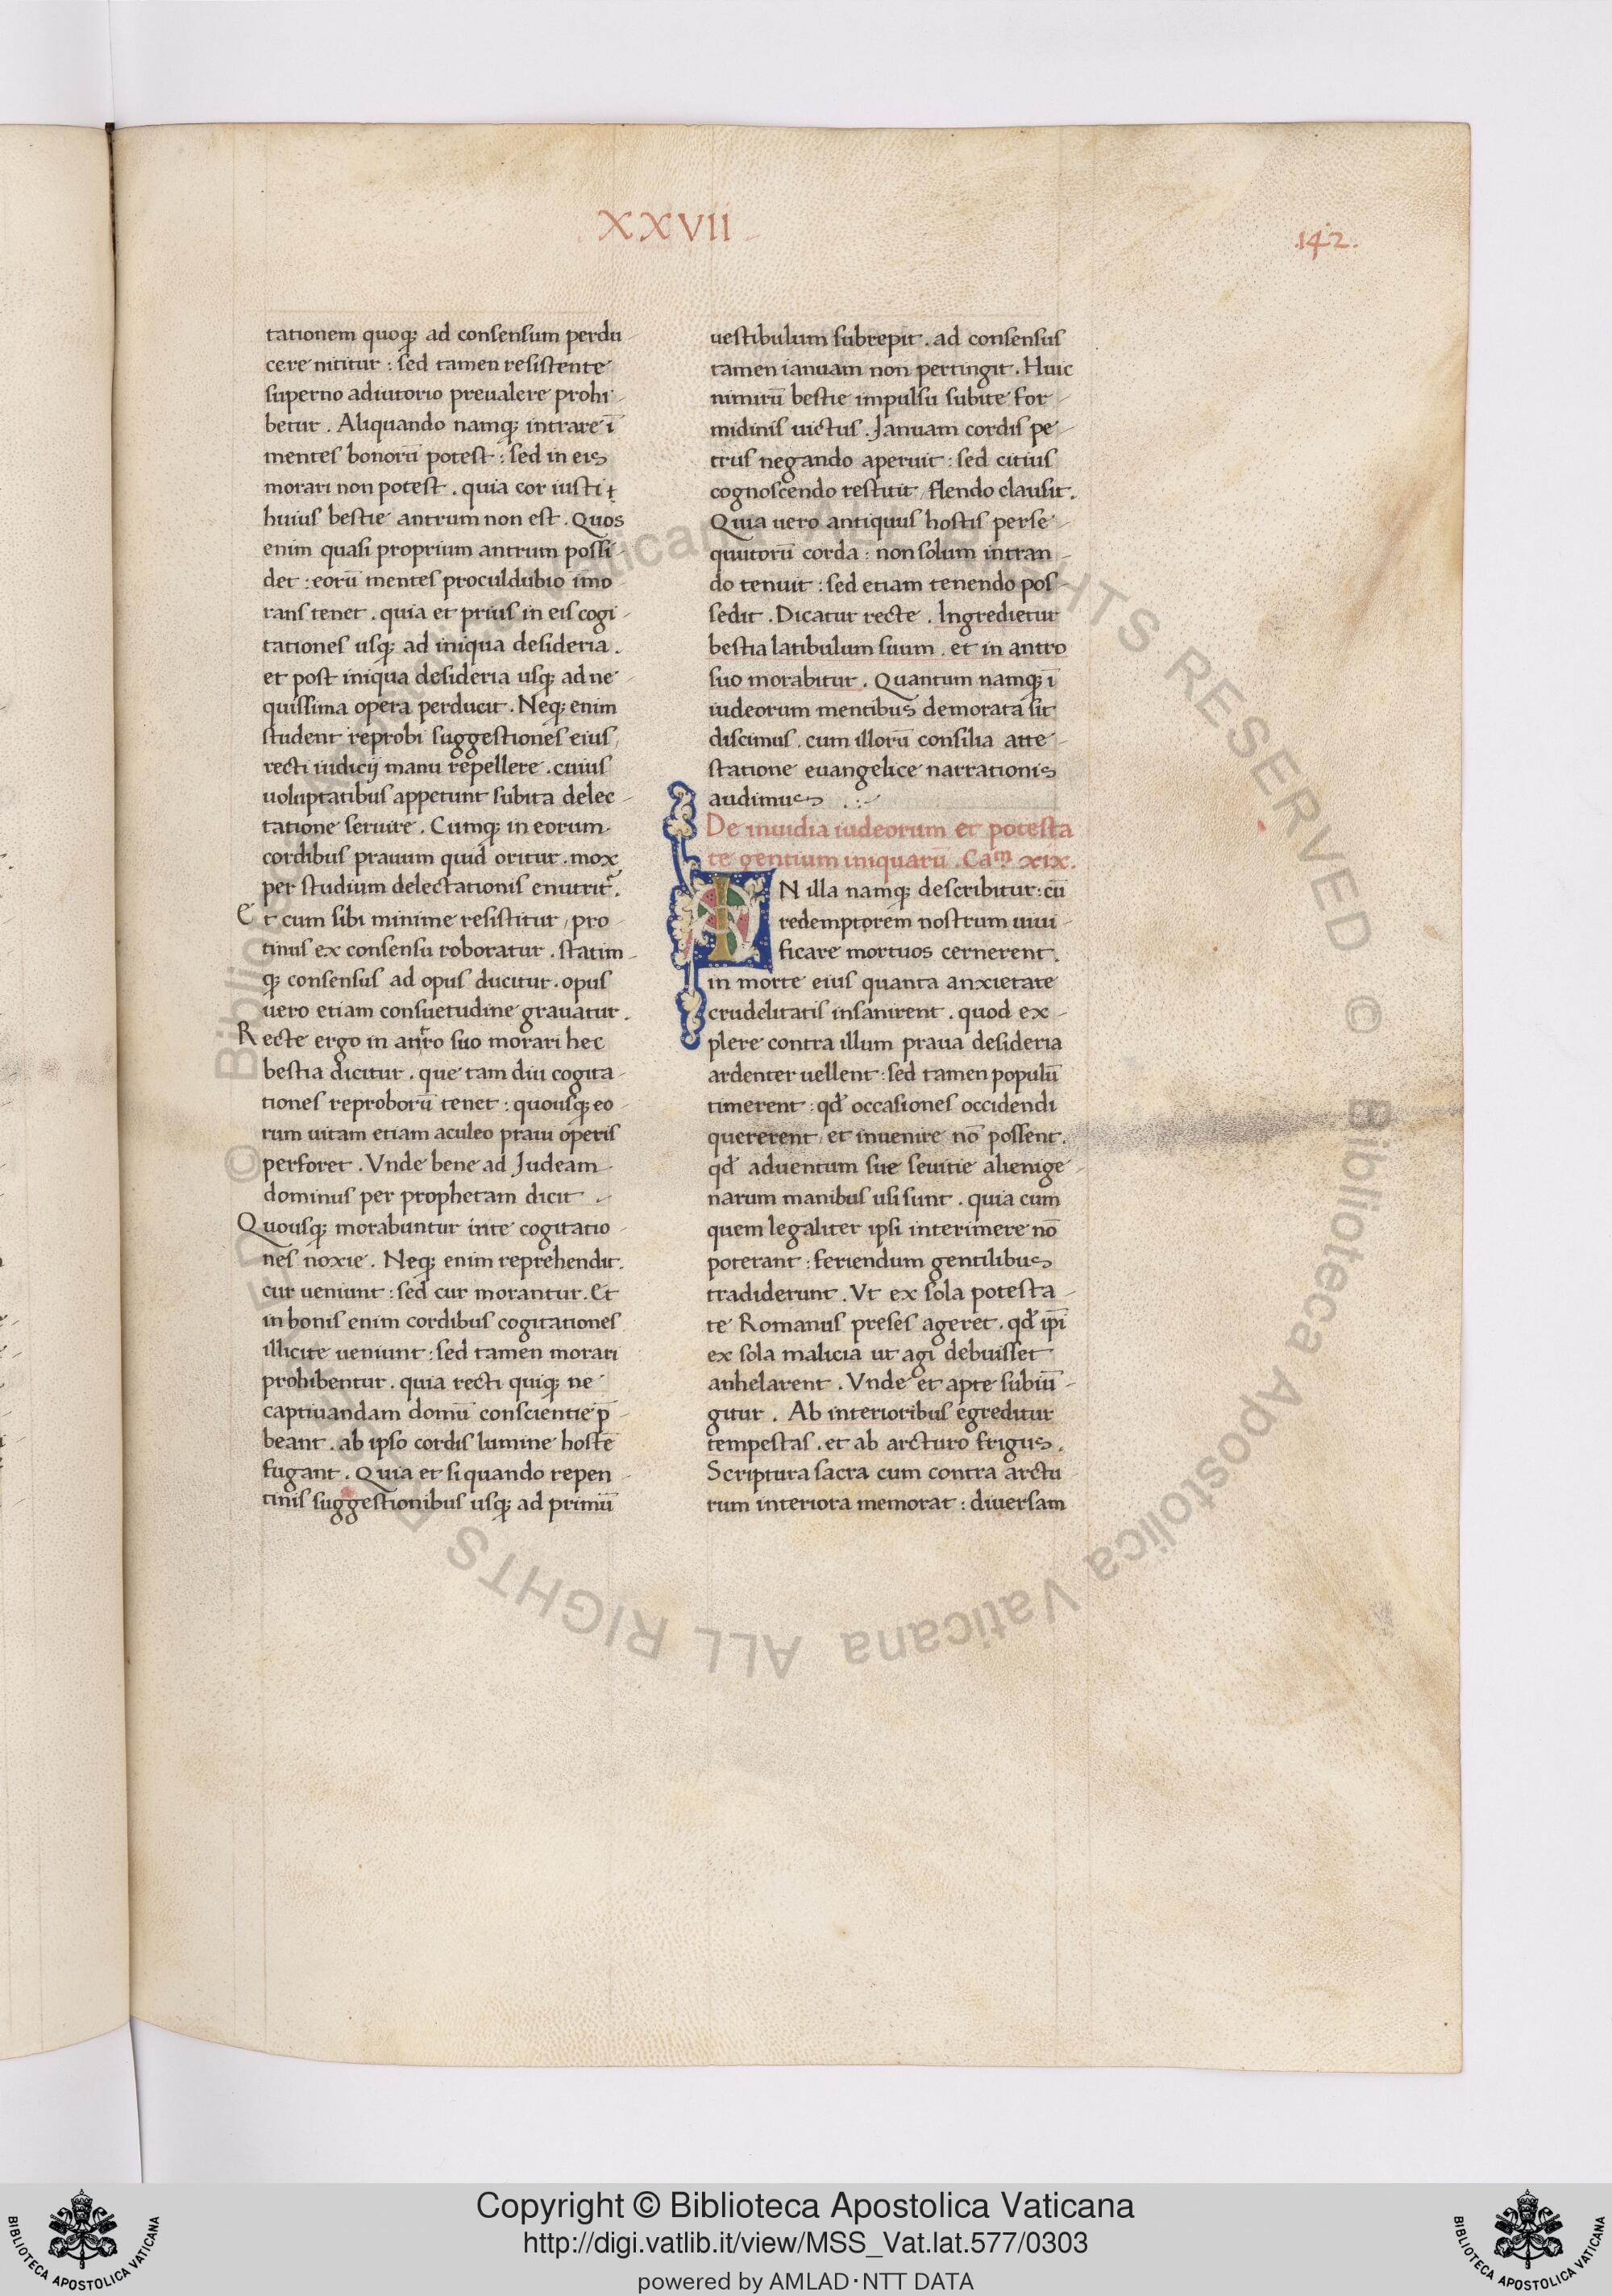 XXVII
.142.
tationem quoq; ad consensum perdu-
cere nititur : sed tamen resistente
superno adiutorio preualere prohi-
betur . Aliquando namq; intrare ī
mentes bonorū potest : sed in eis
morari non potest . quia cor iusti
huius bestie antrum non est . Quos
enim quasi proprium antrum possi-
det : eorū mentes proculdubio imo
rans tenet . quia et prius in eis cogi-
tationes usq; ad iniqua desideria .
et post iniqua desideria usq; ad ne-
quissima opera perducit . Neq; enim
student reprobi suggestiones eius
recti iudicij manu repellere . cuius
uoluptatibus appetunt subita delec-
tatione seruire . Cumq; in eorum
cordibus prauum quid oritur . mox
per studium delectationis enutrit᷑.
Et cum sibi minime resistitur, pro-
tinus ex consensu roboratur . statim-
q; consensus ad opus ducitur . opus
uero etiam consuetudine grauatur .
Recte ergo in antro suo morari hec
bestia dicitur . que tam diu cogita-
tiones reproborū tenet : quousq; eo-
rum uitam etiam aculeo praui operis
perforet . Vnde bene ad Judeam
dominus per prophetam dicit .
Quousq; morabuntur inte cogitatio-
nes noxie . Neq; enim reprehendit.
cur ueniunt : sed cur morantur . Et
in bonis enim cordibus cogitationes
illicite ueniunt : sed tamen morari
prohibentur . quia recti quiq; ne
captiuandam domū conscientie p̄-
beant . ab ipso cordis lumine hostē
fugant . Quia et si quando repen-
tinis suggestionibus usq; ad primū
uestibulum subrepit . ad consensus
tamen ianuam non pertingit . Huic
nimirū bestie impulsu subite for-
midinis uictus . Januam cordis pe-
trus negando aperuit : sed citius
cognoscendo restitit, flendo clausit .
Quia uero antiquus hostis perse-
quutorū corda : non solum intran-
do tenuit : sed etiam tenendo pos-
sedit . Dicatur recte . Ingredietur
bestia latibulum suum . et in antro
suo morabitur . Quantum namq; ī
iudeorum mentibus demorata sit
discimus . cum illorū consilia atte-
statione euangelice narrationis
audimus .:-
De inuidia iudeorum et potesta
te gentium iniquarū . Cam xix.
IN illa namq; describitur : cū
redemptorem nostrum uiui-
ficare mortuos cernerent .
in morte eius quanta anxietate
crudelitatis insanirent . quod ex-
plere contra illum praua desideria
ardenter uellent : sed tamen populū
timerent : qđ occasiones occidendi
quererent, et inuenire nō possent .
qđ aduentum sue seuitie alienige-
narum manibus usi sunt . quia cum
quem legaliter ipsi interimere nō
poterant : feriendum gentilibus
tradiderunt . Vt ex sola potesta-
te Romanus preses ageret . qđ ip̄i
ex sola malicia ut agi debuisset
anhelarent . Vnde et apte subiū-
gitur . Ab interioribus egreditur
tempestas . et ab arcturo frigus .
Scriptura sacra cum contra arctu-
rum interiora memorat : diuersam
© Biblioteca Apostolica Vaticana ALL RIGHTS RESERVED
Copyright © Biblioteca Apostolica Vaticana
http://digi.vatlib.it/view/MSS_Vat.lat.577/0303
powered by AMLAD·NTT DATA
BIBLIOTECA APOSTOLICA VATICANA
BIBLIOTECA APOSTOLICA VATICANA